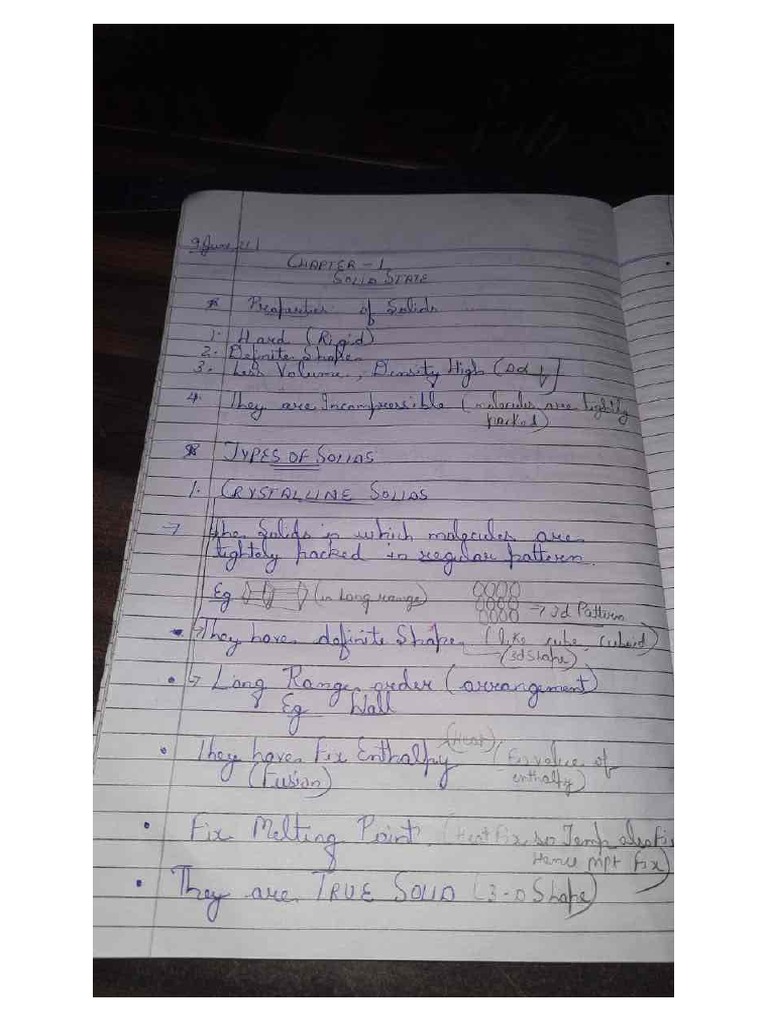 9 June 21
CHAPTER - 1
SOLID STATE
* Properties of Solids
1. Hard (Rigid)
2. Definite Shape
3. Less Volume, Density High
4. They are Incompressible (molecules are tightly
packed)
* TYPES OF SOLIDS
1. CRYSTALLINE SOLIDS
→ The Solids in which molecules are
tightely packed in regular pattern.
Eg (in Long range) → 3d Pattern
• → They have definite Shape (like cube, cuboid)
→ (3d Shape)
• → Long Range order (arrangement)
Eg Wall
• They have Fix Enthalpy (Heat) (Fix value of
(Fusion) enthalpy)
• Fix Melting Point (Heat Fix so Temp also Fix
Hence mpt Fix)
• They are TRUE SOLID (3-D Shape)